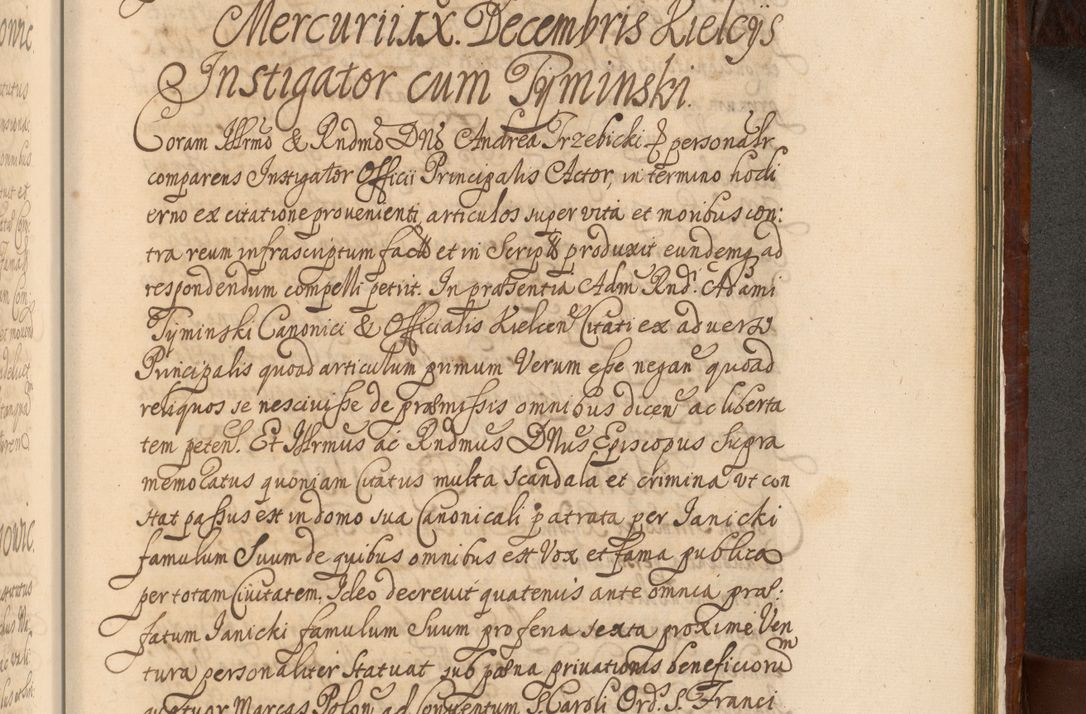 Mercurii IX. Decembris Kielcijs
Instigator cum Tyminski.
Coram Illrmo & Rndmo DNo Andrea Trzebicki Epō personalr
comparens Instigator Officii Principalis Actor, in termino hodi
erno ex citatione provenienti, articulos super vita et moribus con:
tra reum infrascriptum factos et in Scriptis produxit eundemq ad
respondendum compelli petiit. In præsentia Adm Rnd. Adami
Tyminski Canonici & Officialis Kielcen Citati ex adverso
Principalis quoad articulum primum Verum esse negan quoad
reliquos se nescivisse de præmissis omnibus dicen ac liberta
tem peten. Et Illrmus ac Rndmus DNus Episcopus supra
memoratus quoniam Citatus multa scandala et crimina ut con
stat passus est in domo sua Canonicali patrata per Janicki
famulum Suum de quibus omnibus est Vox et fama publica
per totam Civitatem. Ideo decrevit quatenus ante omnia præ:
fatum Janicki famulum Suum pro feria sexta proxime Ven
tura personaliter statuat sub pæna privationis beneficiorum
quatuor Marcas Polon ad Conventum S. Caroli Ord. S. Franci